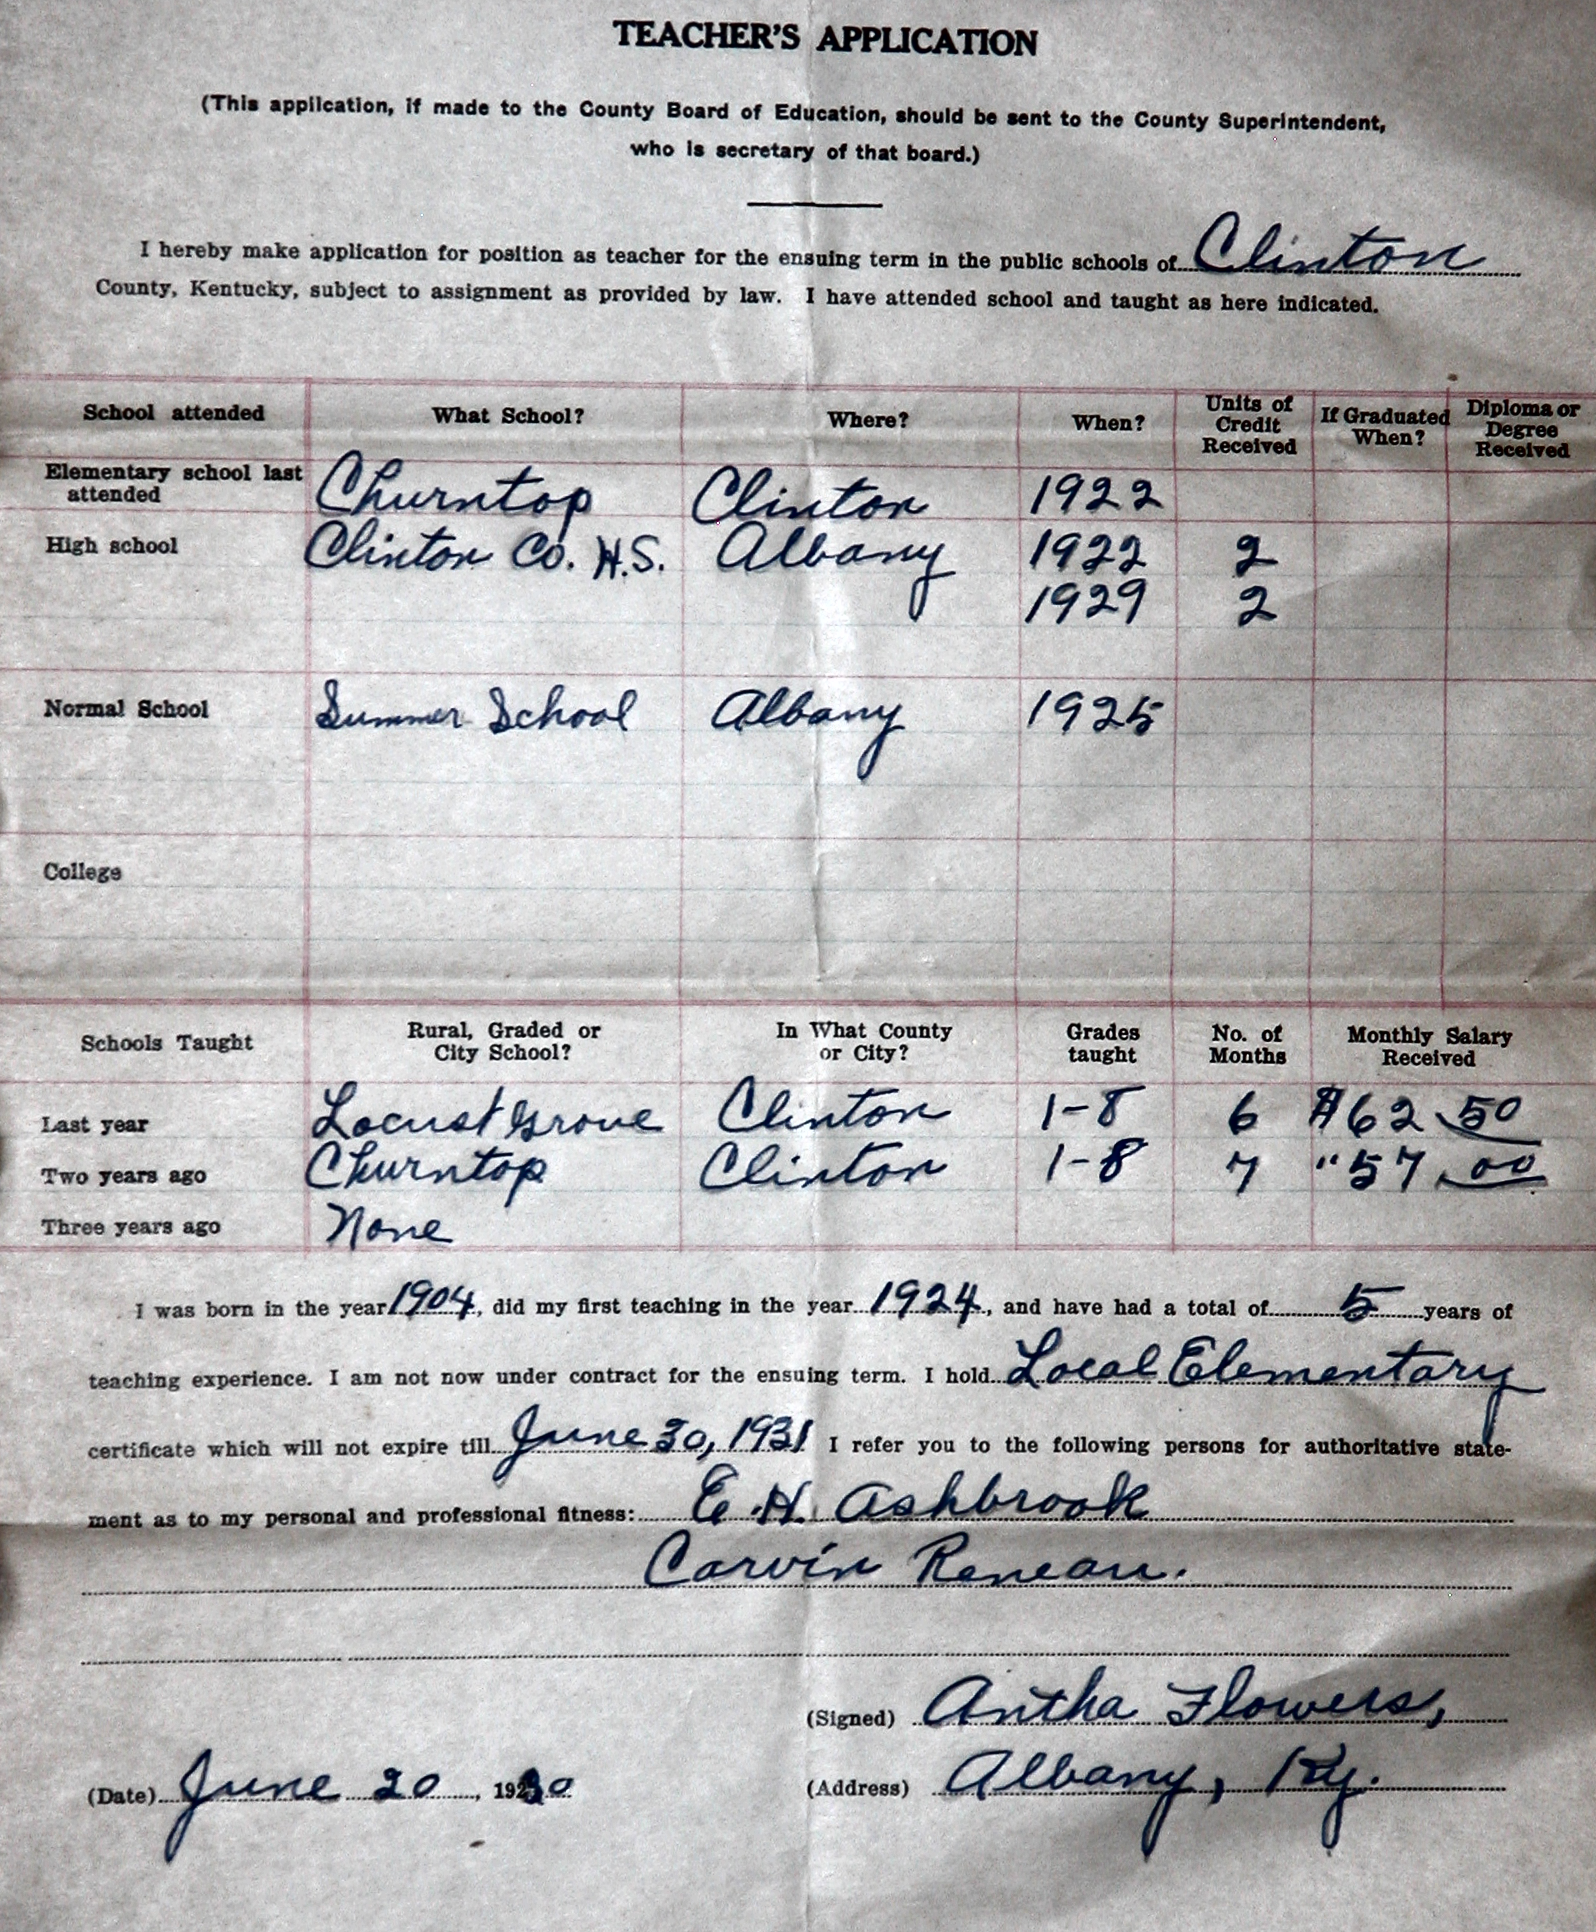 TEACHER'S APPLICATION
(This application, if made to the County Board of Education, should be sent to the County Superintendent,
who is secretary of that board.)
I hereby make application for position as teacher for the ensuing term in the public schools of Clinton
County, Kentucky, subject to assignment as provided by law. I have attended school and taught as here indicated.
School attended What School? Where? When? Units of Credit Received If Graduated When? Diploma or Degree Received
Elementary school last attended Churntop Clinton 1922
High school Clinton Co. H.S. Albany 1922 2
1929 2
Normal School Summer School Albany 1925
College
Schools Taught Rural, Graded or City School? In What County or City? Grades taught No. of Months Monthly Salary Received
Last year Locust Grove Clinton 1-8 6 $62.50
Two years ago Churntop Clinton 1-8 7 "57.00
Three years ago None
I was born in the year 1904, did my first teaching in the year 1924, and have had a total of 5 years of
teaching experience. I am not now under contract for the ensuing term. I hold Local Elementary
certificate which will not expire till June 30, 1931 I refer you to the following persons for authoritative state-
ment as to my personal and professional fitness: E. H. Ashbrook
Carvin Reneau.
(Signed) Antha Flowers,
(Date) June 20, 1930 (Address) Albany, Ky.